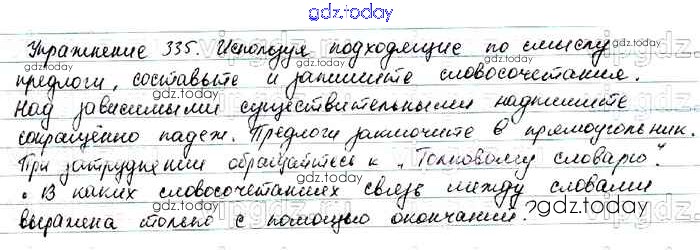 gdz.today
Упражнение 335. Используя подходящие по смыслу
предлоги, составьте и запишите словосочетания.
Над зависимыми существительными надпишите
сокращённо падеж. Предлоги заключите в прямоугольник.
При затруднении обращайтесь к „Толковому словарю".
• В каких словосочетаниях связь между словами
выражена только с помощью окончаний? gdz.today